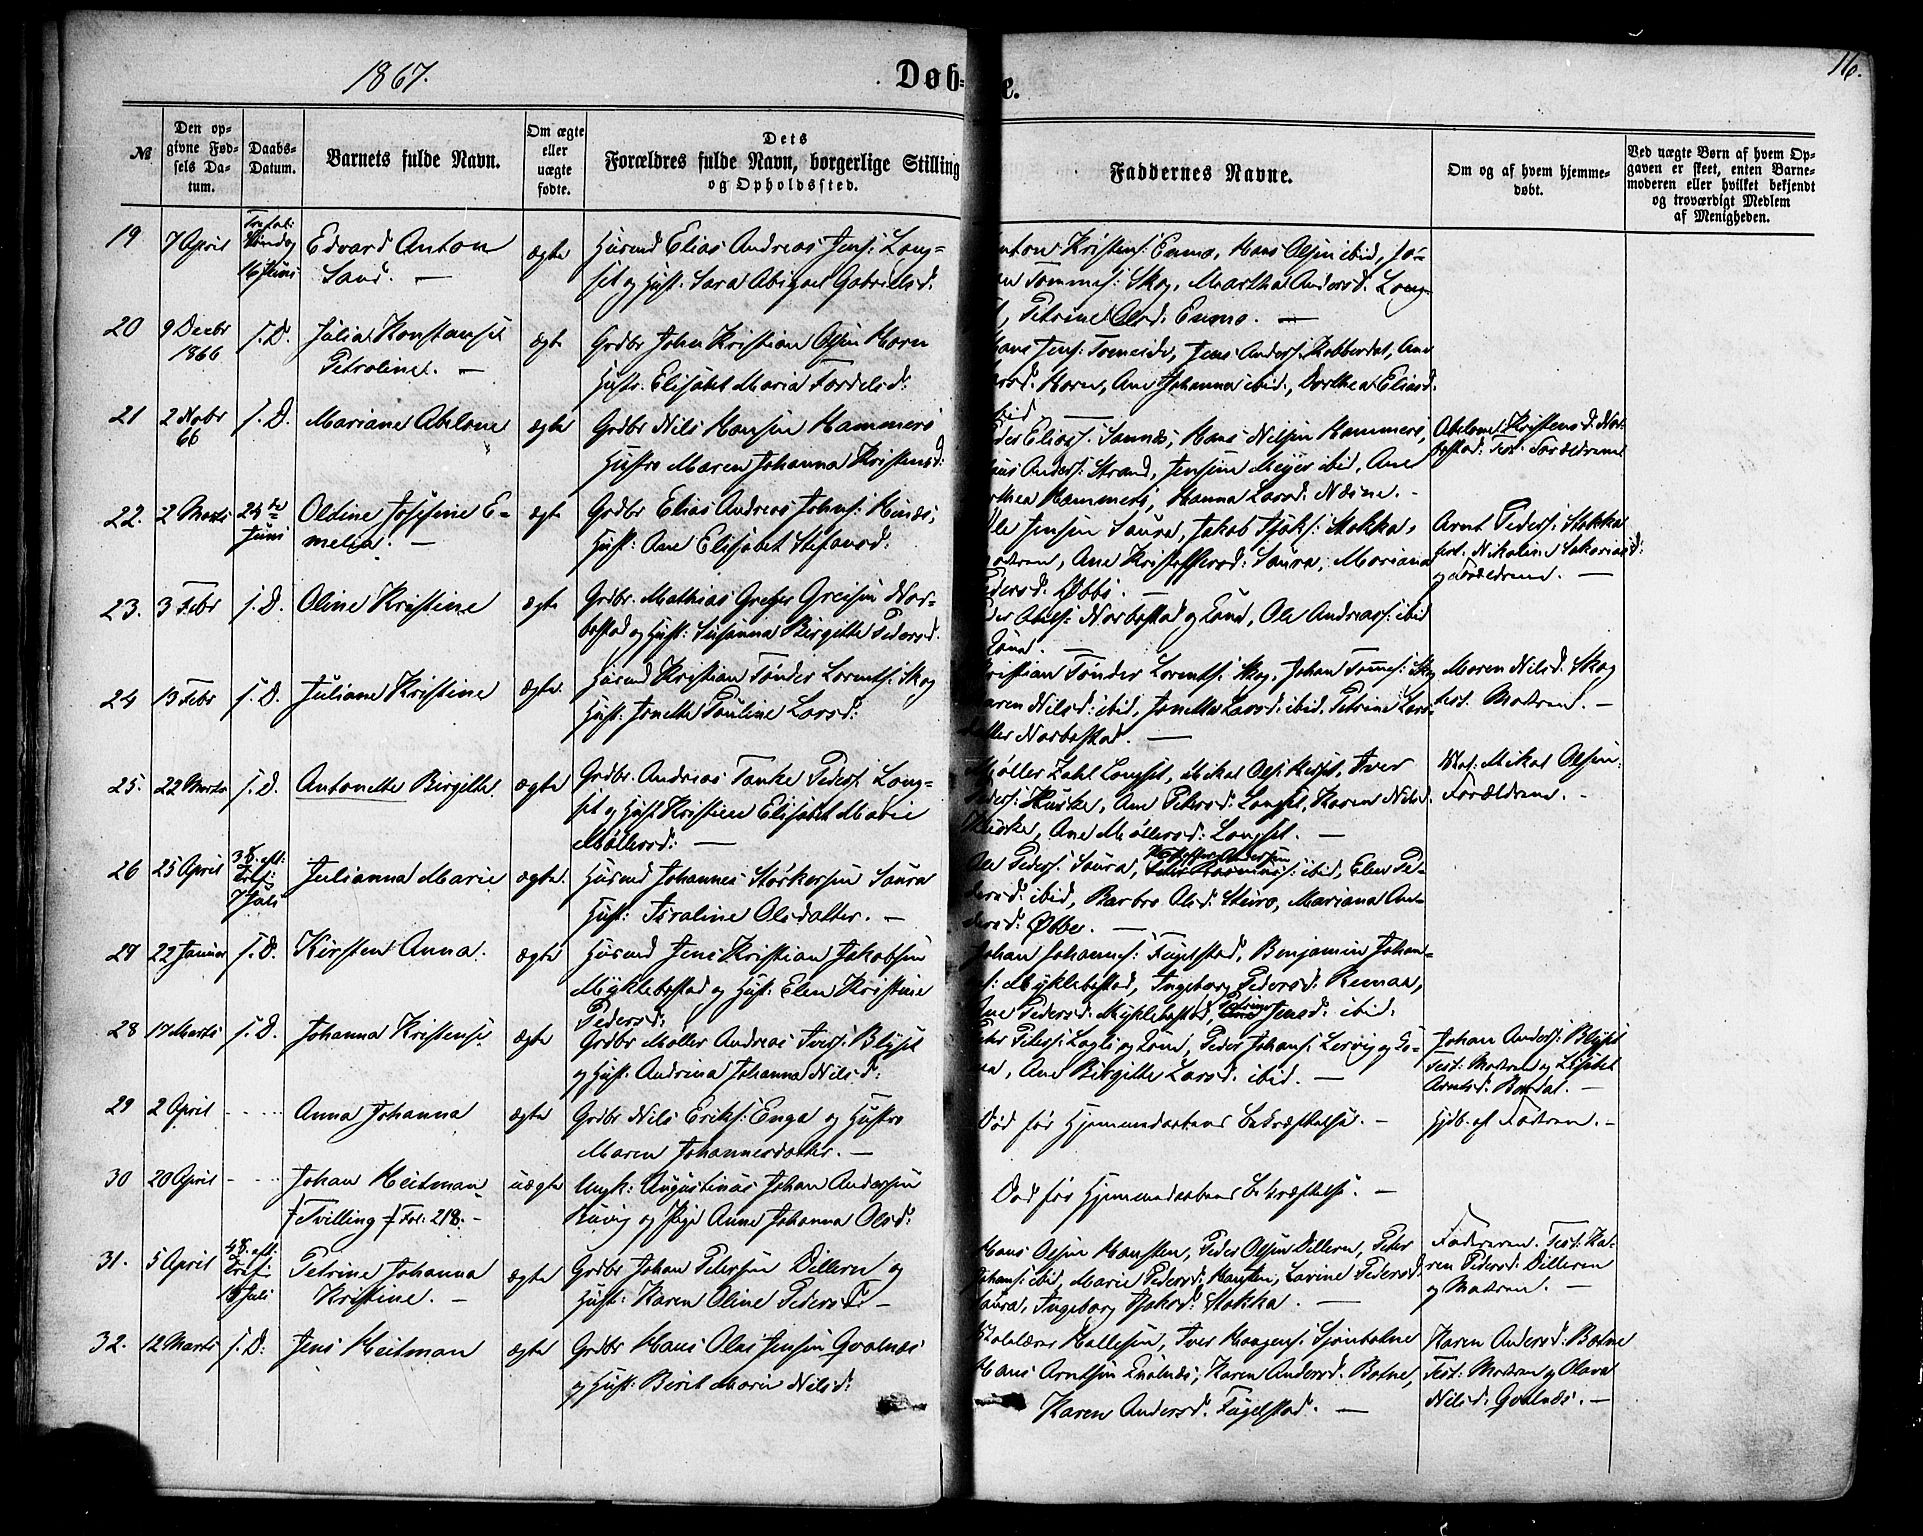 1867.
Døb-
e.
16.
№
Den op-
givne Fød-
sels Da-
tum.
Daabs-
Datum.
Barnets fulde Navn.
Om ægte
eller
uægte
fødte.
Dets
Forældres fulde Navn, borgerlige Stilling
og Opholdssted.
Faddernes Navne.
Om og af hvem hjemme-
døbt.
Ved uægte Børn af hvem Op-
gaven er skeet, enten Barne-
moderen eller hvilket bekjendt
og troværdigt Medlem
af Menigheden.
19 7 April 16 Juni Edvard Anton ægte Husmd Elias Andreas Jens: Lang-
Sand. — set og Hust. Sara Abigael Gabrielsd.
Kristens: Enmo, Hans Olsen ibid, Jo-
Tommes: Skog, Martha Andersd. Lang-
Petrine Olsd. Enmo. —
20 9 Decbr 1866 s. D. Julia Konstanse ægte Grdbr John Kristian Olsen Horn
Petroline. — Hustr. Elisabet Maria Tordelsd:
Hans Jens: Tomeide, Jens Anders: Kobberdal, Ane
Horn, Ane Johanna ibid, Dorthea Eliasd.
ibid —
21 2 Novbr 66 s. D. Mariane Abelone ægte Grdbr Nils Hansen Hammerö
Hustro Maren Johanna Kristensd:
Elias: Sannæs, Hans Nilsen Hammerö,
Anders: Strand, Jensine Meyer ibid, Ane
Hammerö, Hanna Larsd. Næsne. -
Abelone Kristensd. Nor-
bostad: Test. Forældrene
22. 2 Marts 24de Juni Oldine Josefine E- ægte Grdbr Elias Andreas Johns: Hunæs,
melia. — Hust: Ane Elisabet Stefansd:
Ole Jensen Saura, Jakob Tjøls: Stokka,
Modren, Ane Kristoffersd: Saura, Mariana
Pedersd. Øbbe. —
Arnt Peders: Stokka
test. Nikoline Sakariasd:
og Forældrene. —
23. 3 Febr s. D. Oline Kristine ægte Grdbr. Mathias Greger Greisen Nor-
bostad og Hust: Susanna Birgitte Pedersd.
Norbostad og Kona, Ole Andreass: ibid
Kona. —
24 13 Febr s. D. Juliane Kristine ægte. Husmd Kristian Tönder Lorents: Skog
Hust: Jonette Pauline Larsd:
Kristian Tönder Lorents: Skog, Johan Tommes: Skog
Maren Nilsd: ibid, Jonette Larsd. ibid. Petrine Lars-
datter Norbostad. —
Maren Nilsd. Skog
test. Modren. —
25. 22 Marts s. D. Antonette Birgitte. ægte Grdbr. Andreas Tanke Peders: Lang-
set og Hust Kristine Elisabet Marie
Möllersd: —
Møller Zahl Langset, Mikal Ols: Iver
Peders: Huske, Ane Petersd: Langset, Karen Nilsd.
Huske, Ane Möllersd: Langset. —
Mikal Olsen:
Forældrene. -
26 25 April 3 S. eft: Tref: 7 Juli Julianna Marie ægte. Husmd Johannes Störkersen Saura
Hust: Taraline Olsdatter. —
Ole Peders: Saura, Kristoffer Andersen ibid, Elen Pe-
dersd: ibid, Barbro Olsd: Steiro, Mariana An-
dersd: Øbbe. —
27 22 Januar s. D. Kirsten Anna. ægte Husmd Jens Kristian Jakobsen
Myklebostad og Hust: Elen Kristine
Pedersd:
Johan Johannes: Fugelstad, Benjamin Johan-
Myklebostad, Ingeborg Pedersd: Remaa,
Ane Pedersd: Myklebostad, Petrine Jensd: ibid:
28 17 Marts s. D. Johanna Kristense ægte Grdbr Möller Andreas Ivers: Blixet
og Hust: Andrina Johanna Nilsd:
Peters: Lagli og Kona, Peder Johans: Lervig og Ko-
na, Ane Birgitte Larsd. ibid. —
Johan Anders: Blixet
Test: Modren og Lisbet
Arntsd. —
29 2 April - - - - Anna Johanna ægte Grdbr Nils Eriks: Enge og Hustro
Maren Johannesdatter. —
Död før Hjemmedaabens Bekræftelse. —
Hjdb. af Fadren. —
30 20 April - - - - Johan Heitman uægte Ungk: Augustinus Johan Andersen
/: Tvilling :/ Fol: 218. - og Pige Anne Johanna Olsd:
Död før Hjemmedaabens Bekræftelse. —
31. 5 April 4 S. eft: Tref: Juli Petrine Johanna ægte Grdbr Johan Petersen Dilleren og
Kristine. — Hust: Karen Oline Pedersd. —
Hans Olsen Hansten, Peder Olsen Dilleren, Peter
Johans: ibid, Marie Pedersd: Hansten, Lavine Pedersd:
Saura, Ingeborg Tjølsd: Stokka. —
Faderen. Test: Ka-
ren Pedersd: Dilleren
og Modren. —
32. 12 Marts s. D: Jens Heitman ægte Grdbr Hans Olai Jensen Qvalnæs
og Hust: Berit Maria Nilsd:
Skolelærer Hallesen, Iver Haagens: Sjønbotne
Hans Arntsen Qvalnæs, Karen Andersd. Botne,
Karen Andersd. Fugelstad. —
Karen Andersd. Botne
Test: Modren og Olava
Nilsd. Qvalnæs. —